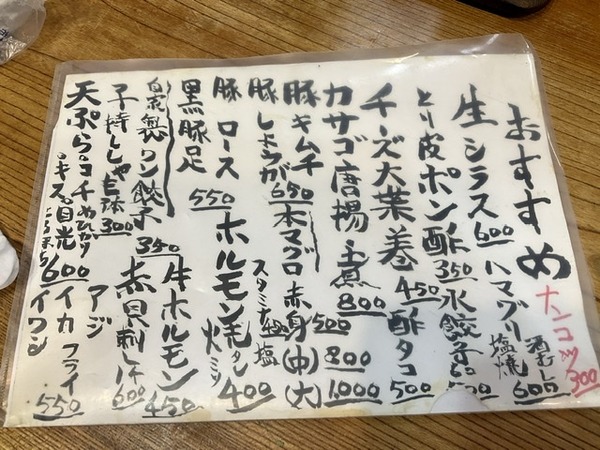 おすすめ
ナンコツ 300
生シラス 600
ハマグリ 酒むし 塩焼 600
とり皮ポン酢 350
水餃子
チーズ大葉巻 450
酢タコ 500
カサゴ唐揚 煮 800
豚キムチ
豚しょうが 650
本マグロ赤身 500
(中) 800
(大) 1,000
豚ロース
スタミナ 塩
黒豚足 550
ホルモン焼 タレ ミソ 400
自家製ワン餃子 350
牛ホルモン 450
子持ししゃも 300
赤貝刺し 600
天ぷら・コチ めひかり
・キス・目光 600
アジ
イカ フライ
イワシ 550